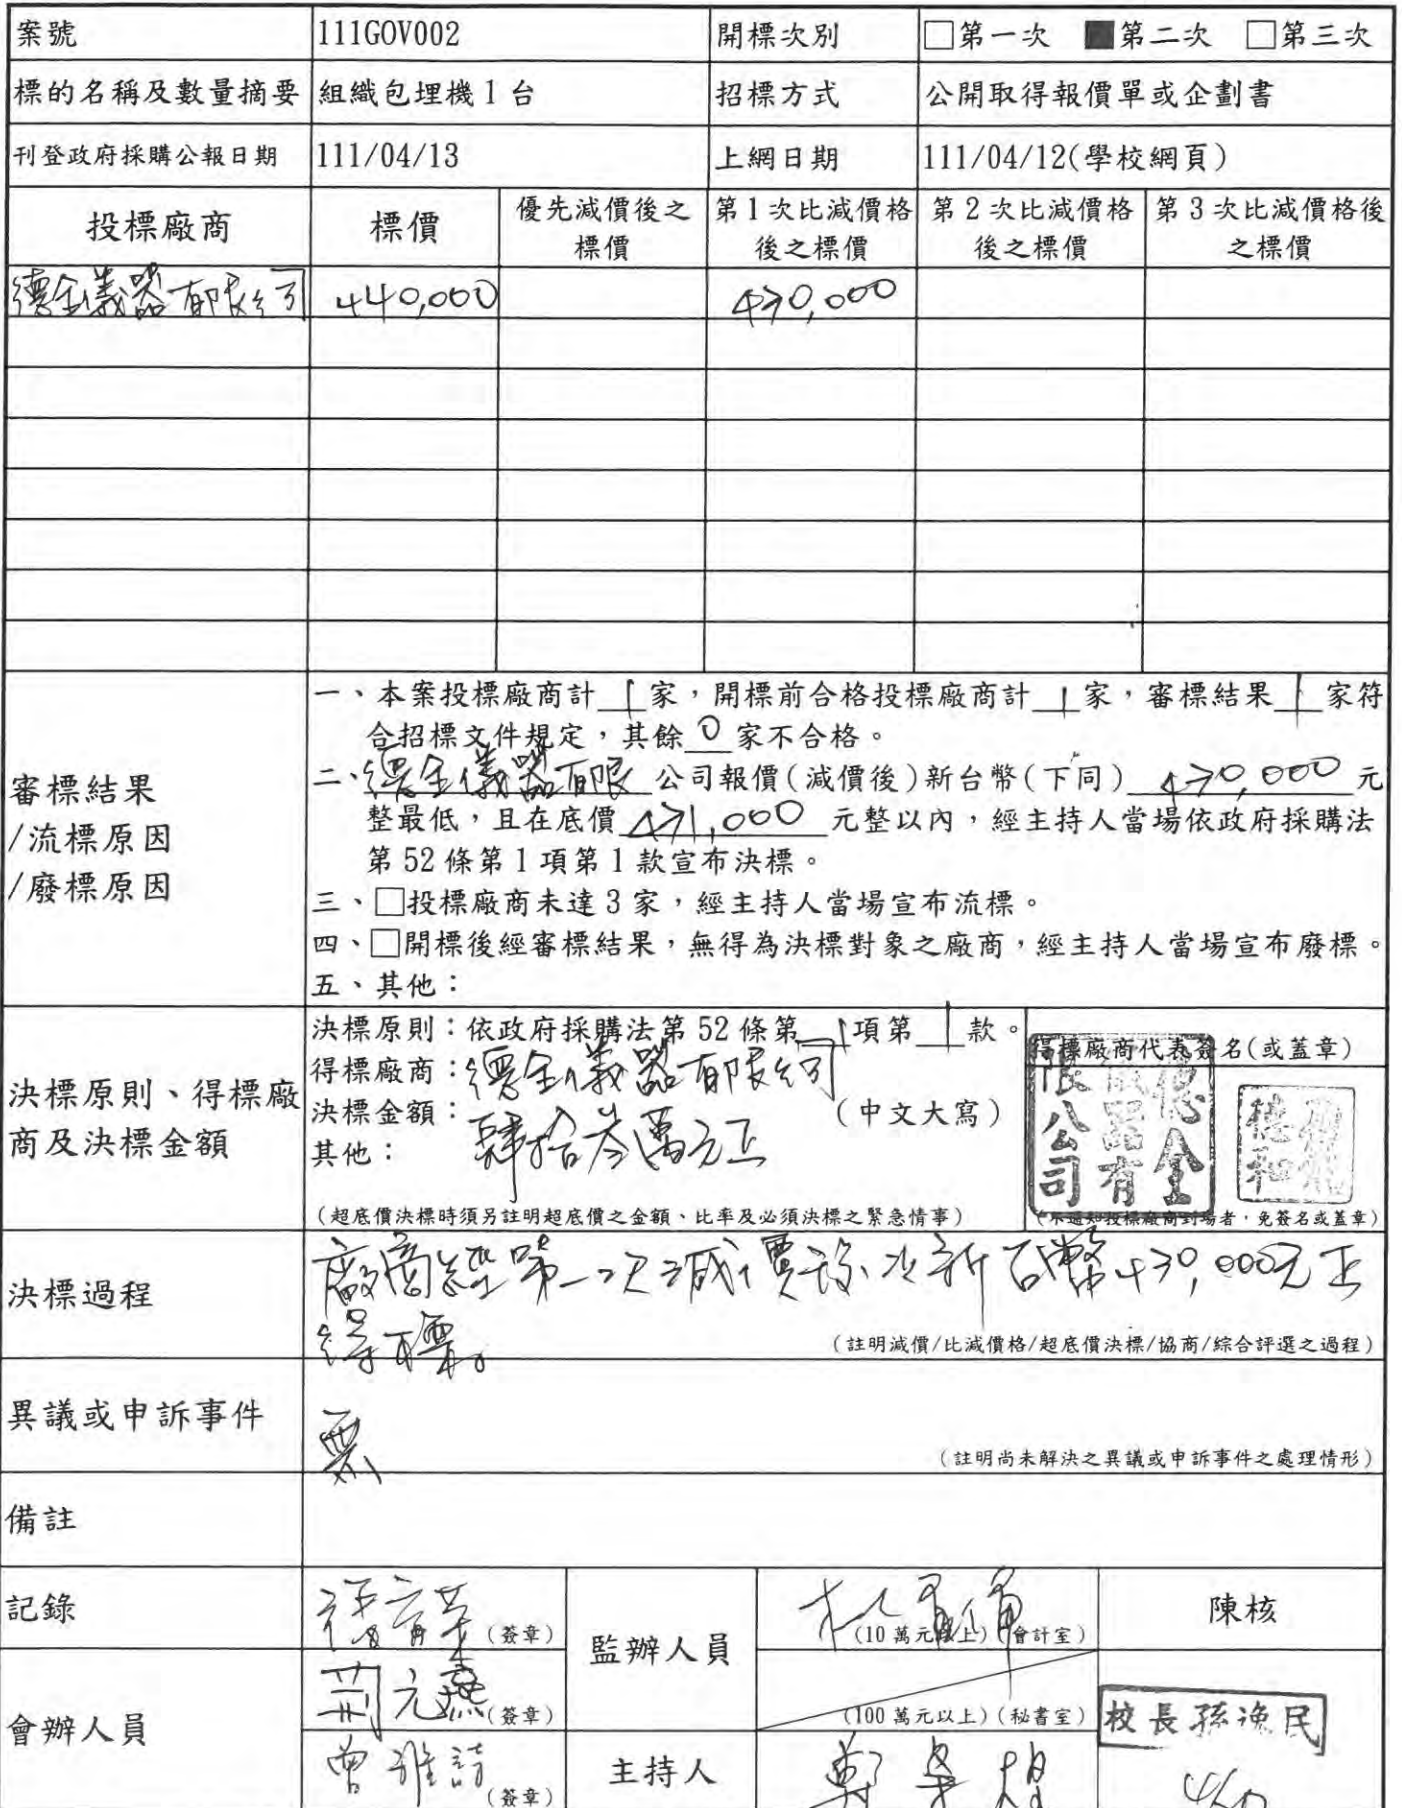 案號 111GOV002 開標次別 □第一次 ■第二次 □第三次
標的名稱及數量摘要 組織包埋機1台 招標方式 公開取得報價單或企劃書
刊登政府採購公報日期 111/04/13 上網日期 111/04/12(學校網頁)
投標廠商 標價 優先減價後之標價 第1次比減價格後之標價 第2次比減價格後之標價 第3次比減價格後之標價
德全儀器有限公司 440,000 430,000
審標結果
/流標原因
/廢標原因
一、本案投標廠商計 1 家，開標前合格投標廠商計 1 家，審標結果 1 家符
合招標文件規定，其餘 0 家不合格。
二、德全儀器有限公司報價(減價後)新台幣(下同) 430,000 元
整最低，且在底價 431,000 元整以內，經主持人當場依政府採購法
第52條第1項第1款宣布決標。
三、□投標廠商未達3家，經主持人當場宣布流標。
四、□開標後經審標結果，無得為決標對象之廠商，經主持人當場宣布廢標。
五、其他：
決標原則、得標廠
商及決標金額
決標原則：依政府採購法第52條第 1 項第 1 款。
得標廠商：德全儀器有限公司
決標金額：肆拾參萬元正 (中文大寫)
其他：
(超底價決標時須另註明超底價之金額、比率及必須決標之緊急情事)
得標廠商代表簽名(或蓋章)
德全儀器有限公司
(不通知投標廠商到場者，免簽名或蓋章)
決標過程
廠商經第一次減價後以新台幣430,000元正
得標。
(註明減價/比減價格/超底價決標/協商/綜合評選之過程)
異議或申訴事件
無
(註明尚未解決之異議或申訴事件之處理情形)
備註
記錄 (簽章) 監辦人員 (10萬元以上)(會計室) 陳核
會辦人員 (簽章) (100萬元以上)(秘書室) 校長孫逸民
(簽章) 主持人